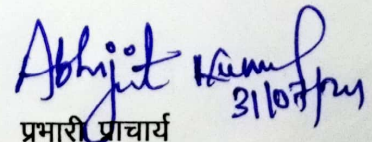 Abhijit Kumar
31/07/24
प्रभारी प्राचार्य